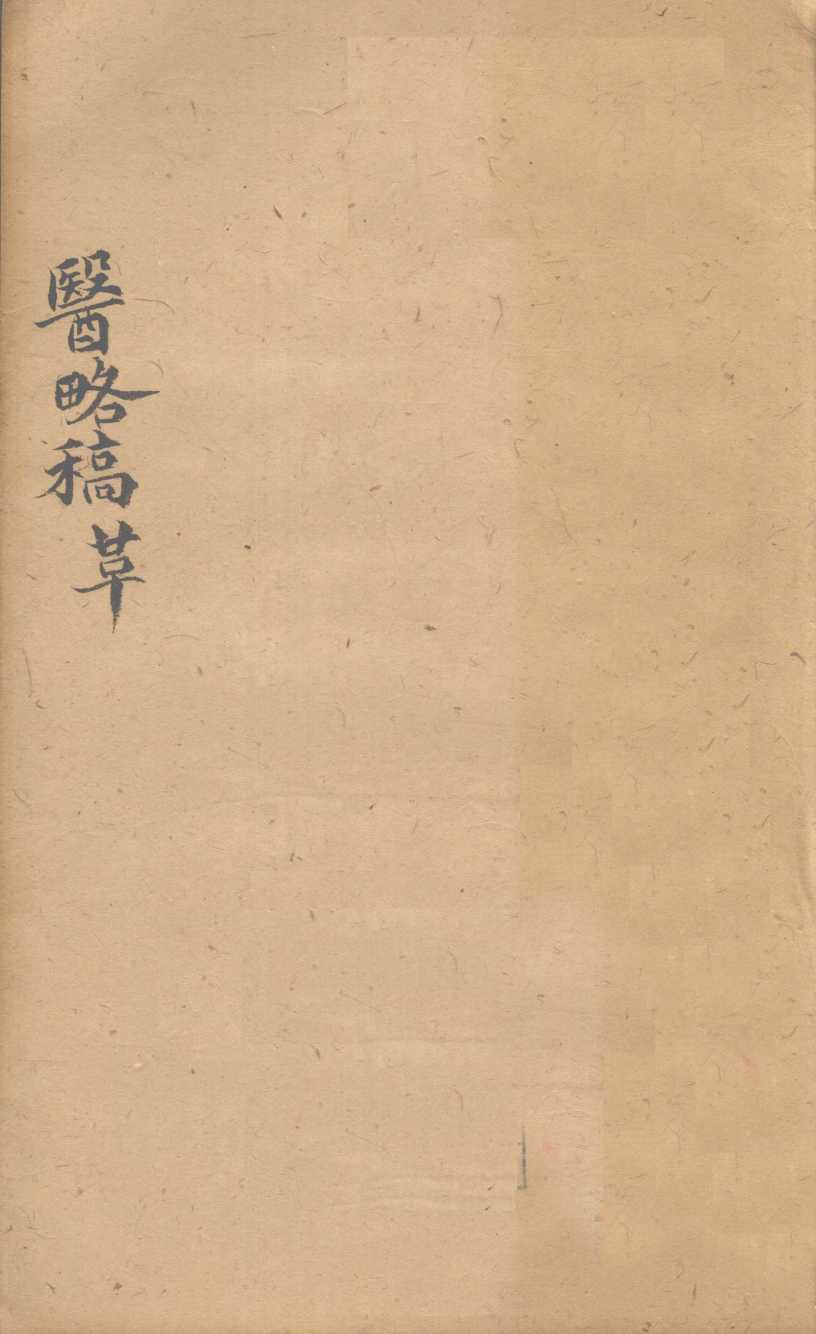 醫略稿草